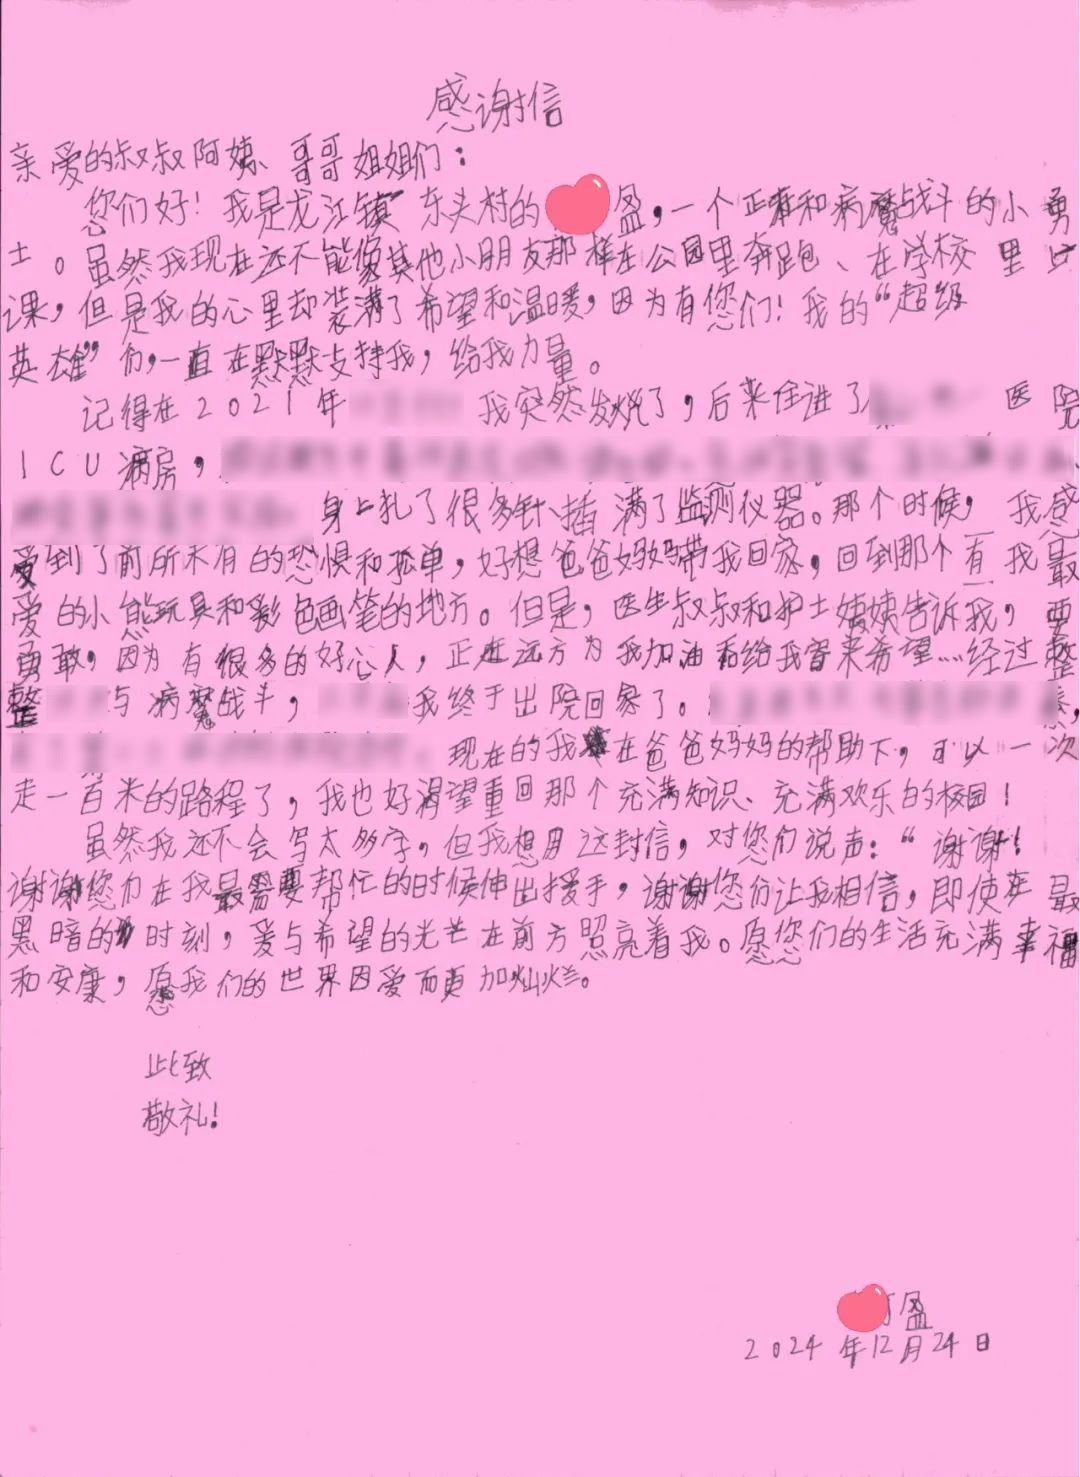 感谢信
亲爱的叔叔阿姨、哥哥姐姐们：
您们好！我是龙江镇东头村的盈，一个正在和病魔战斗的小勇
士。虽然我现在还不能像其他小朋友那样在公园里奔跑、在学校里上
课，但是我的心里却装满了希望和温暖，因为有您们！我的“超级
英雄”们，一直在默默支持我，给我力量。
记得在2021年 我突然发烧了，后来住进了 医院
ICU病房，
身上扎了很多针、插满了监测仪器。那个时候，我感
受到了前所未有的恐惧和孤单，好想爸爸妈妈带我回家，回到那个有我最
爱的小熊玩具和彩色画笔的地方。但是，医生叔叔和护士姨姨告诉我，要
勇敢，因为有很多的好心人，正在远方为我加油和给我带来希望……经过整
整 与病魔战斗， 我终于出院回家了。
现在的我在爸爸妈妈的帮助下，可以一次
走一百米的路程了，我也好渴望重回那个充满知识、充满欢乐的校园！
虽然我还不会写太多字，但我想用这封信，对您们说声：“谢谢！
谢谢您们在我最需要帮忙的时候伸出援手，谢谢您们让我相信，即使在最
黑暗的时刻，爱与希望的光芒在前方照亮着我。愿您们的生活充满幸福
和安康，愿我们的世界因爱而更加灿烂。
此致
敬礼！
盈
2024年12月24日